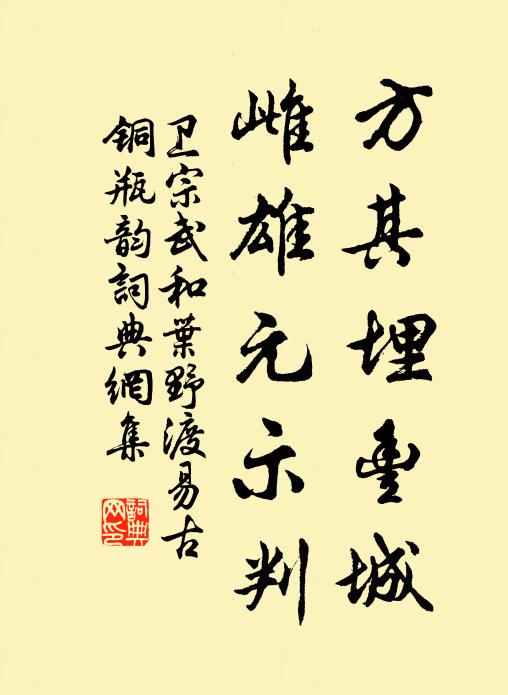 方其埋豐城
雌雄元示判
卫宗武和葉野渡易古
銅瓶韵詞典網集
詞典
网印